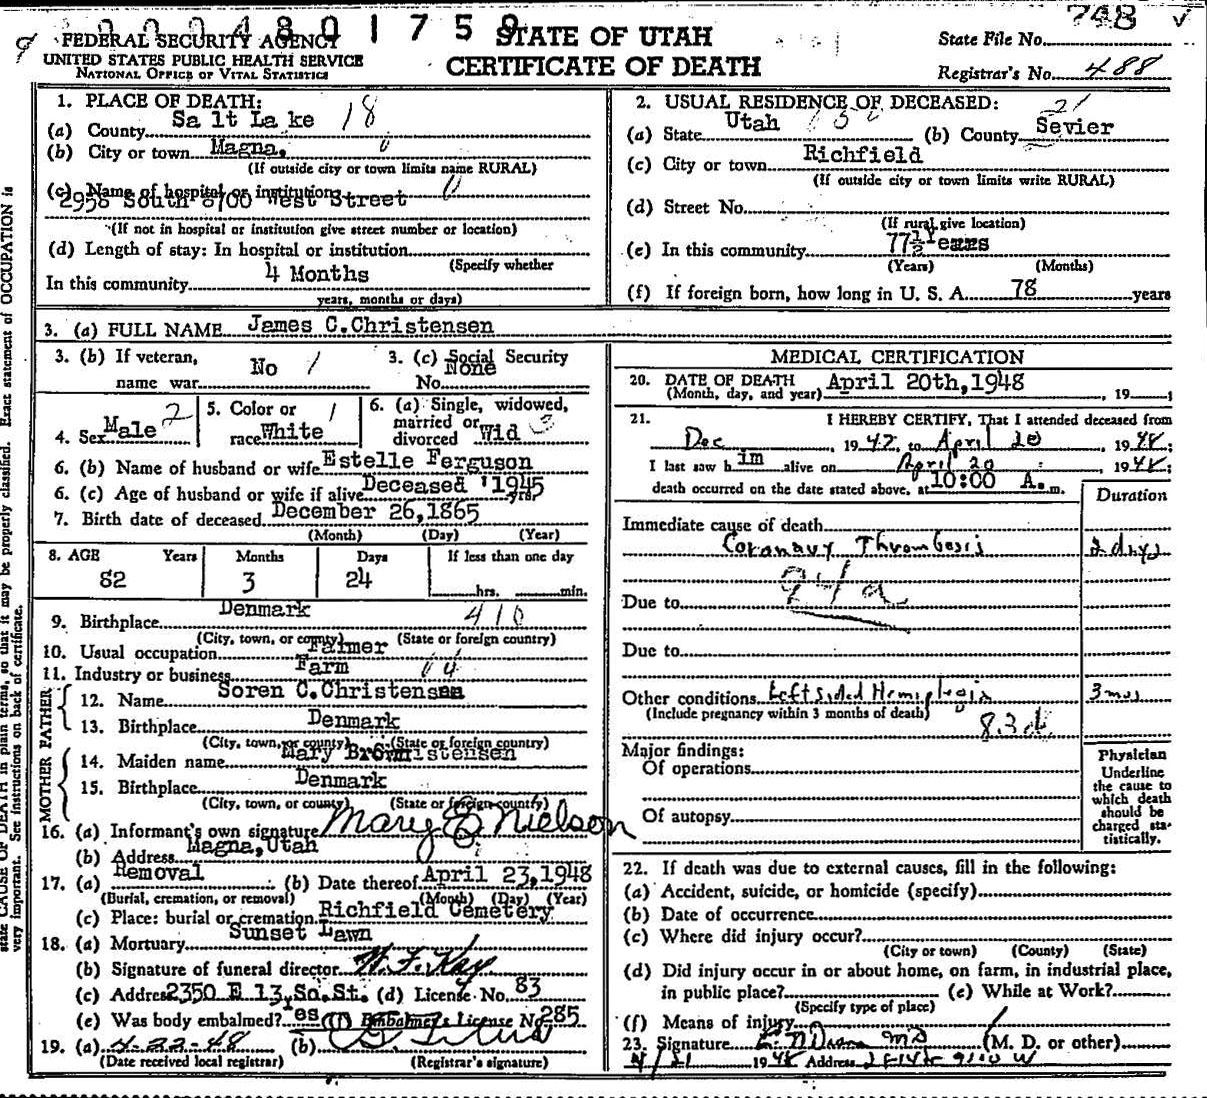 0004801759
748 ✓
9
FEDERAL SECURITY AGENCY
UNITED STATES PUBLIC HEALTH SERVICE
NATIONAL OFFICE OF VITAL STATISTICS
STATE OF UTAH
CERTIFICATE OF DEATH
State File No.
Registrar's No. 488
1. PLACE OF DEATH:
(a) County Salt Lake 18
(b) City or town Magna,
(If outside city or town limits name RURAL)
(c) Name of hospital or institution:
2958 South 8700 West Street
(If not in hospital or institution give street number or location)
(d) Length of stay: In hospital or institution
(Specify whether
In this community 4 Months
years, months or days)
2. USUAL RESIDENCE OF DECEASED:
(a) State Utah (b) County Sevier
21
(c) City or town Richfield
(If outside city or town limits write RURAL)
(d) Street No.
(If rural give location)
(e) In this community 77½ Years
(Years) (Months)
(f) If foreign born, how long in U. S. A. 78 years
3. (a) FULL NAME James C.Christensen
3. (b) If veteran, name war No 1
3. (c) Social Security No. None
4. Sex Male 2
5. Color or race White 1
6. (a) Single, widowed, married or divorced Wid 3
6. (b) Name of husband or wife Estelle Ferguson
6. (c) Age of husband or wife if alive Deceased '1945 yrs.
7. Birth date of deceased December 26,1865
(Month) (Day) (Year)
8. AGE Years Months Days If less than one day
82 3 24 hrs. min.
9. Birthplace Denmark 410
(City, town, or county) (State or foreign country)
10. Usual occupation Farmer
11. Industry or business Farm 14
FATHER
12. Name Soren C.Christensen
13. Birthplace Denmark
(City, town, or county) (State or foreign country)
MOTHER
14. Maiden name Mary
15. Birthplace Denmark
(City, town, or county) (State or foreign country)
16. (a) Informant's own signature Mary E Nielson
(b) Address Magna,Utah
17. (a) Removal (b) Date thereof April 23,1948
(Burial, cremation, or removal) (Month) (Day) (Year)
(c) Place: burial or cremation Richfield Cemetery
18. (a) Mortuary Sunset Lawn
(b) Signature of funeral director W. F. Kay
(c) Address 2350 E 13 So.St. (d) License No. 83
(e) Was body embalmed? Yes (f) Embalmer's License No. 285
19. (a) 4-22-48 (b)
(Date received local registrar) (Registrar's signature)
MEDICAL CERTIFICATION
20. DATE OF DEATH April 20th,1948
(Month, day, and year) , 19 ;
21. I HEREBY CERTIFY, That I attended deceased from
Dec 1947 to April 20 1948
I last saw him alive on April 20 1948
death occurred on the date stated above, at 10:00 A. m.
Duration
Immediate cause of death
Coronary Thrombosis 2 days
94a
Due to
Due to
Other conditions Left sided Hemiplegia 3 mos
(Include pregnancy within 3 months of death)
83d
Major findings:
Of operations
Of autopsy
Physician
Underline
the cause to
which death
should be
charged sta-
tistically.
22. If death was due to external causes, fill in the following:
(a) Accident, suicide, or homicide (specify)
(b) Date of occurrence
(c) Where did injury occur?
(City or town) (County) (State)
(d) Did injury occur in or about home, on farm, in industrial place,
in public place? (e) While at Work?
(Specify type of place)
(f) Means of injury
23. Signature MD (M. D. or other)
4/21 1948 Address
state CAUSE OF DEATH in plain terms, so that it may be properly classified. Exact statement of OCCUPATION is
very important. See instructions on back of certificate.